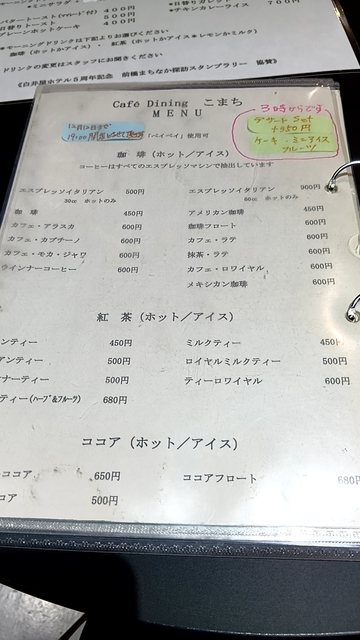 バタートースト(マーマレード付) 400円
500円
プレーンホットケーキ 400円
●チキンカレーライス 700円
●モーニングドリンクは下記よりお選びください
珈琲(ホットかアイス)・ 紅茶(ホットかアイス●レモンかミルク)
ドリンクの変更はスタッフにお聞きください
《白井屋ホテル5周年記念 前橋まちなか探訪スタンプラリー 協賛》
Café Dining こまち
MENU
(ペイペイ)使用可
3時からです
デザート Set
+350円
ケーキ・ミニアイス
フルーツ
珈 琲(ホット/アイス)
コーヒーはすべてのエスプレッソマシンで抽出しています
エスプレッソイタリアン 500円
30cc ホットのみ
エスプレッソイタリアン 900円
60cc ホットのみ
珈 琲 450円
アメリカン珈琲 450円
カフェ・アラスカ 600円
珈琲フロート 600円
カフェ・カプチーノ 600円
カフェ・ラテ 600円
カフェ・モカ・ジャワ 600円
抹茶・ラテ 600円
ウインナーコーヒー 600円
カフェ・ロワイヤル 600円
メキシカン珈琲 600円
紅 茶(ホット/アイス)
ンティー 450円
ミルクティー 450円
アンティー 500円
ロイヤルミルクティー 500円
ナーティー 500円
ティーロワイヤル 600円
ティー(ハーブ&フルーツ) 680円
ココア(ホット/アイス)
ココア 650円
ココアフロート 680円
コア 500円